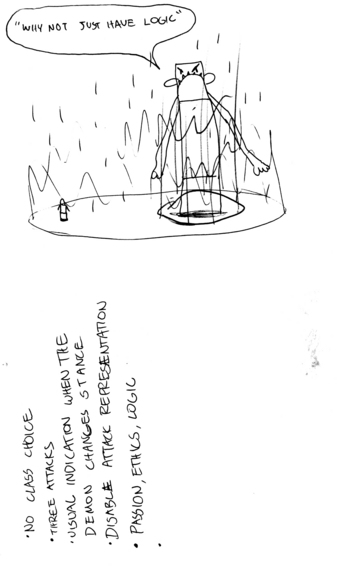 "WHY NOT JUST HAVE LOGIC"
• NO CLASS CHOICE
• THREE ATTACKS
• VISUAL INDICATION WHEN THE
DEMON CHANGES STANCE
• DISABLE ATTACK REPRESENTATION
• PASSION, ETHICS, LOGIC
•